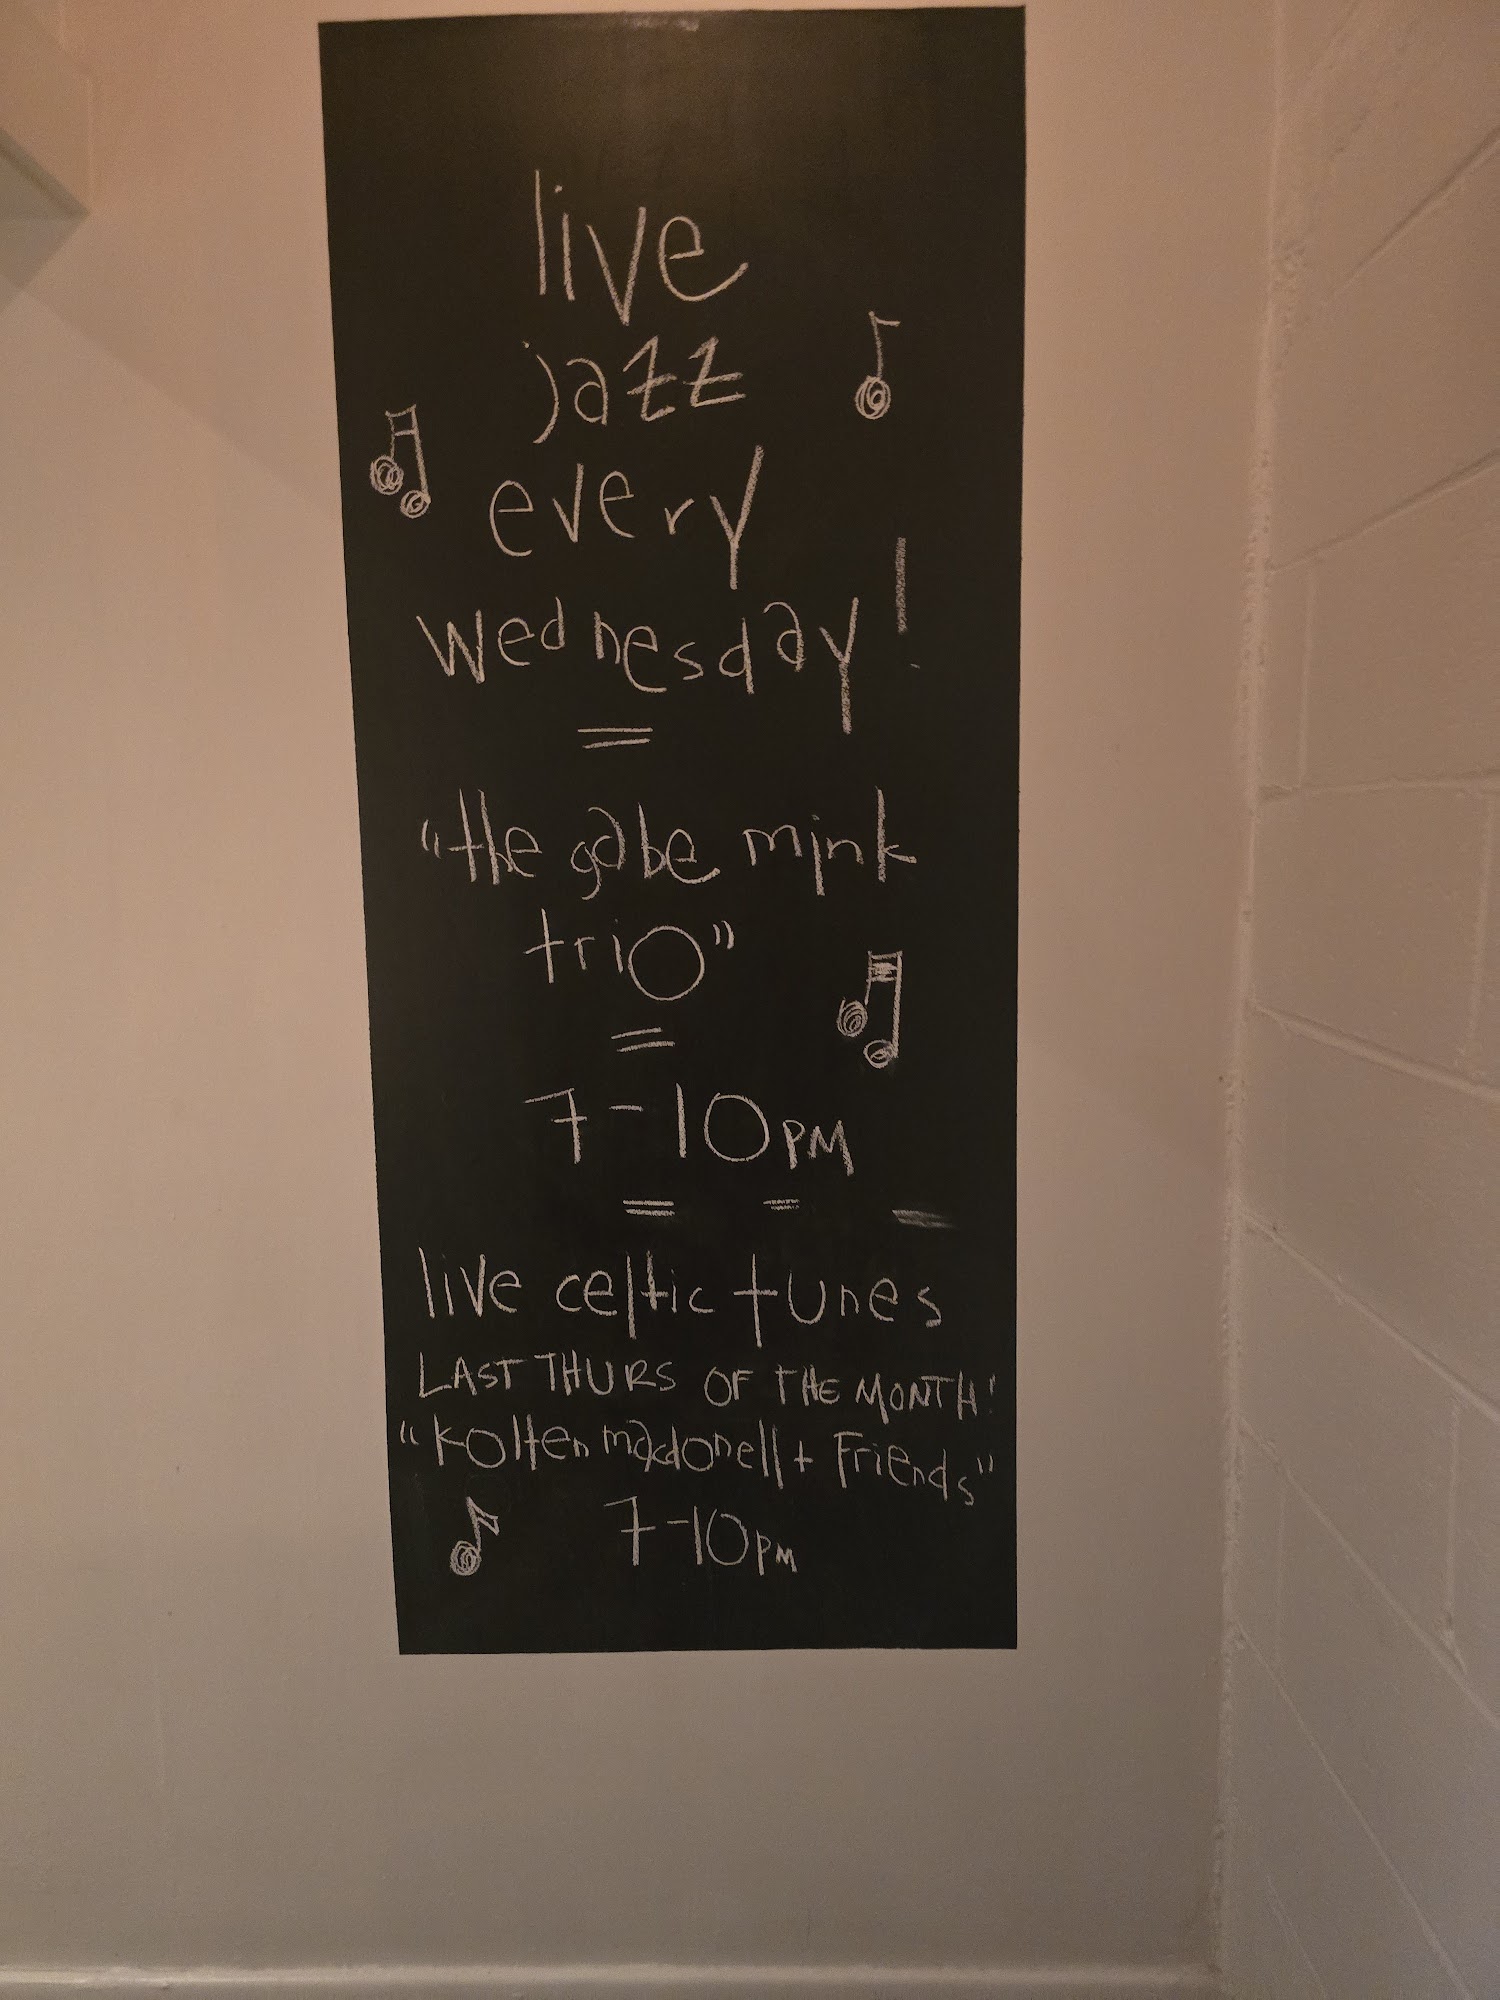 live
jazz
every
wednesday!
"the gabe mink
trio"
7-10PM
live celtic tunes
LAST THURS OF THE MONTH!
"kolten macdonell + Friends"
7-10PM